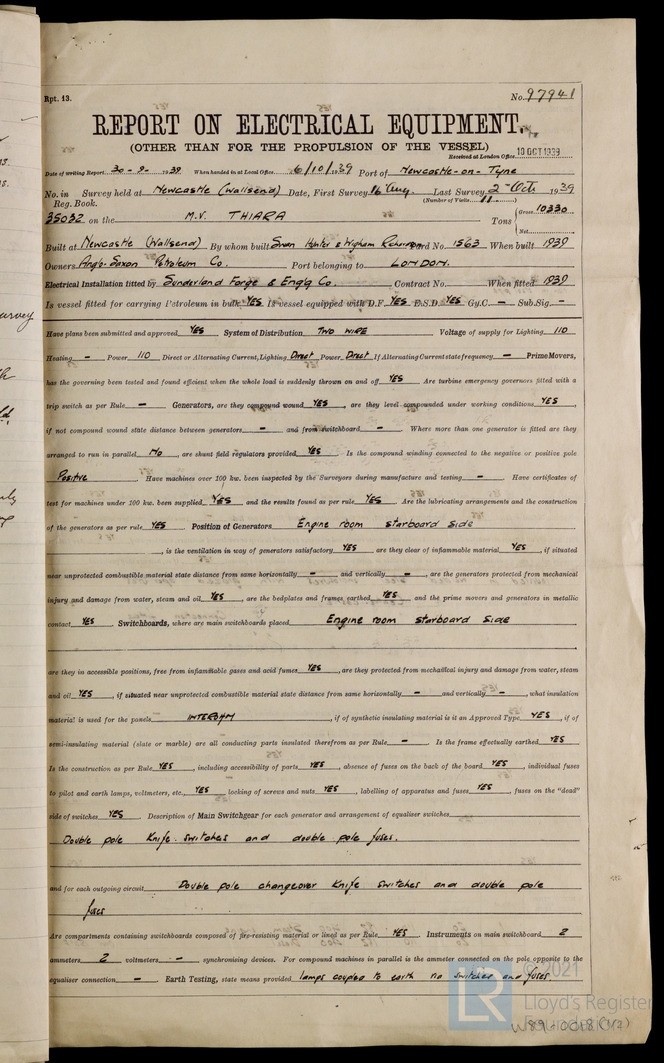 Rpt. 13.
No. 97941
REPORT ON ELECTRICAL EQUIPMENT.
(OTHER THAN FOR THE PROPULSION OF THE VESSEL)
Received at London Office 18 OCT 1939
Date of writing Report 30-9-1939 When handed in at Local Office 6/10/1939 Port of Newcastle-on-Tyne
No. in Survey held at Newcastle (Wallsend) Date, First Survey 16 Aug. Last Survey 2nd Oct 1939
Reg. Book. (Number of Visits 11)
35032 on the M.V. THIARA Tons Gross 10330
Net
Built at Newcastle (Wallsend) By whom built Swan Hunter & Wigham Richardson Yard No. 1563 When built 1939
Owners Anglo-Saxon Petroleum Co. Port belonging to LONDON.
Electrical Installation fitted by Sunderland Forge & Eng'g Co. Contract No. When fitted 1939
Is vessel fitted for carrying Petroleum in bulk YES Is vessel equipped with D.F. YES E.S.D. YES Gy.C. - Sub.Sig. -
Have plans been submitted and approved YES System of Distribution TWO WIRE Voltage of supply for Lighting 110
Heating - Power 110 Direct or Alternating Current, Lighting Direct Power Direct If Alternating Current state frequency - Prime Movers,
has the governing been tested and found efficient when the whole load is suddenly thrown on and off YES Are turbine emergency governors fitted with a
trip switch as per Rule - Generators, are they compound wound YES, are they level compounded under working conditions YES,
if not compound wound state distance between generators - and from switchboard - Where more than one generator is fitted are they
arranged to run in parallel No, are shunt field regulators provided YES. Is the compound winding connected to the negative or positive pole
Positive. Have machines over 100 kw. been inspected by the Surveyors during manufacture and testing -. Have certificates of
test for machines under 100 kw. been supplied YES and the results found as per rule YES. Are the lubricating arrangements and the construction
of the generators as per rule YES Position of Generators Engine room starboard side
, is the ventilation in way of generators satisfactory YES are they clear of inflammable material YES, if situated
near unprotected combustible material state distance from same horizontally - and vertically -, are the generators protected from mechanical
injury and damage from water, steam and oil YES, are the bedplates and frames earthed YES and the prime movers and generators in metallic
contact YES. Switchboards, where are main switchboards placed Engine room starboard side
are they in accessible positions, free from inflammable gases and acid fumes YES, are they protected from mechanical injury and damage from water, steam
and oil YES, if situated near unprotected combustible material state distance from same horizontally - and vertically -, what insulation
material is used for the panels INTEROHM, if of synthetic insulating material is it an Approved Type YES, if of
semi-insulating material (slate or marble) are all conducting parts insulated therefrom as per Rule -. Is the frame effectually earthed YES
Is the construction as per Rule YES, including accessibility of parts YES, absence of fuses on the back of the board YES, individual fuses
to pilot and earth lamps, voltmeters, etc., YES locking of screws and nuts YES, labelling of apparatus and fuses YES, fuses on the "dead"
side of switches YES. Description of Main Switchgear for each generator and arrangement of equaliser switches
Double pole Knife switches and double pole fuses.
and for each outgoing circuit Double pole changeover Knife switches and double pole
fuses
Are compartments containing switchboards composed of fire-resisting material or lined as per Rule YES. Instruments on main switchboard 2
ammeters 2 voltmeters - synchronising devices. For compound machines in parallel is the ammeter connected on the pole opposite to the
equaliser connection -. Earth Testing, state means provided lamps coupled to earth via switches and fuses.
© 2021
Lloyd's Register
Foundation
W89-0018 (1/2)
LR